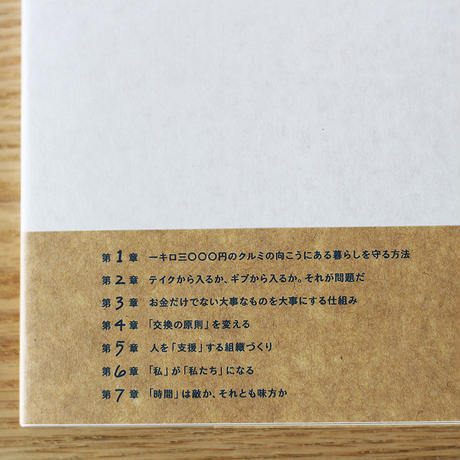 第1章 一キロ三〇〇〇円のクルミの向こうにある暮らしを守る方法
第2章 テイクから入るか、ギブから入るか。それが問題だ
第3章 お金だけでない大事なものを大事にする仕組み
第4章 「交換の原則」を変える
第5章 人を「支援」する組織づくり
第6章 「私」が「私たち」になる
第7章 「時間」は敵か、それとも味方か